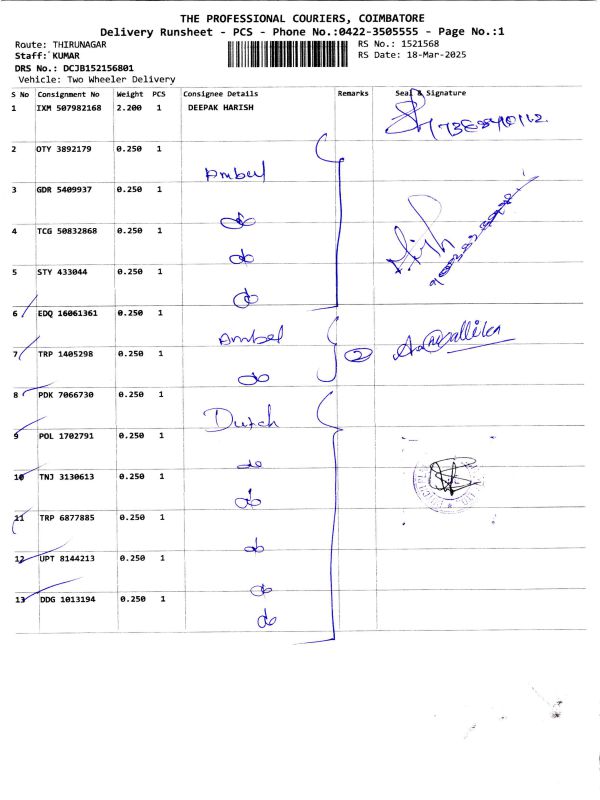 THE PROFESSIONAL COURIERS, COIMBATORE
Delivery Runsheet - PCS - Phone No.:0422-3505555 - Page No.:1
Route: THIRUNAGAR RS No.: 1521568
Staff: KUMAR RS Date: 18-Mar-2025
DRS No.: DCJB152156801
Vehicle: Two Wheeler Delivery
S No Consignment No Weight PCS Consignee Details Remarks Seal & Signature
1 IXM 507982168 2.200 1 DEEPAK HARISH
2 OTY 3892179 0.250 1
Ambul
3 GDR 5409937 0.250 1
do
4 TCG 50832868 0.250 1
do
5 STY 433044 0.250 1
do
6 EDQ 16061361 0.250 1
Ambel
7 TRP 1405298 0.250 1 2
do
8 PDK 7066730 0.250 1
Dutch
9 POL 1702791 0.250 1
do
10 TNJ 3130613 0.250 1
do
11 TRP 6877885 0.250 1
do
12 UPT 8144213 0.250 1
do
13 DDG 1013194 0.250 1
do